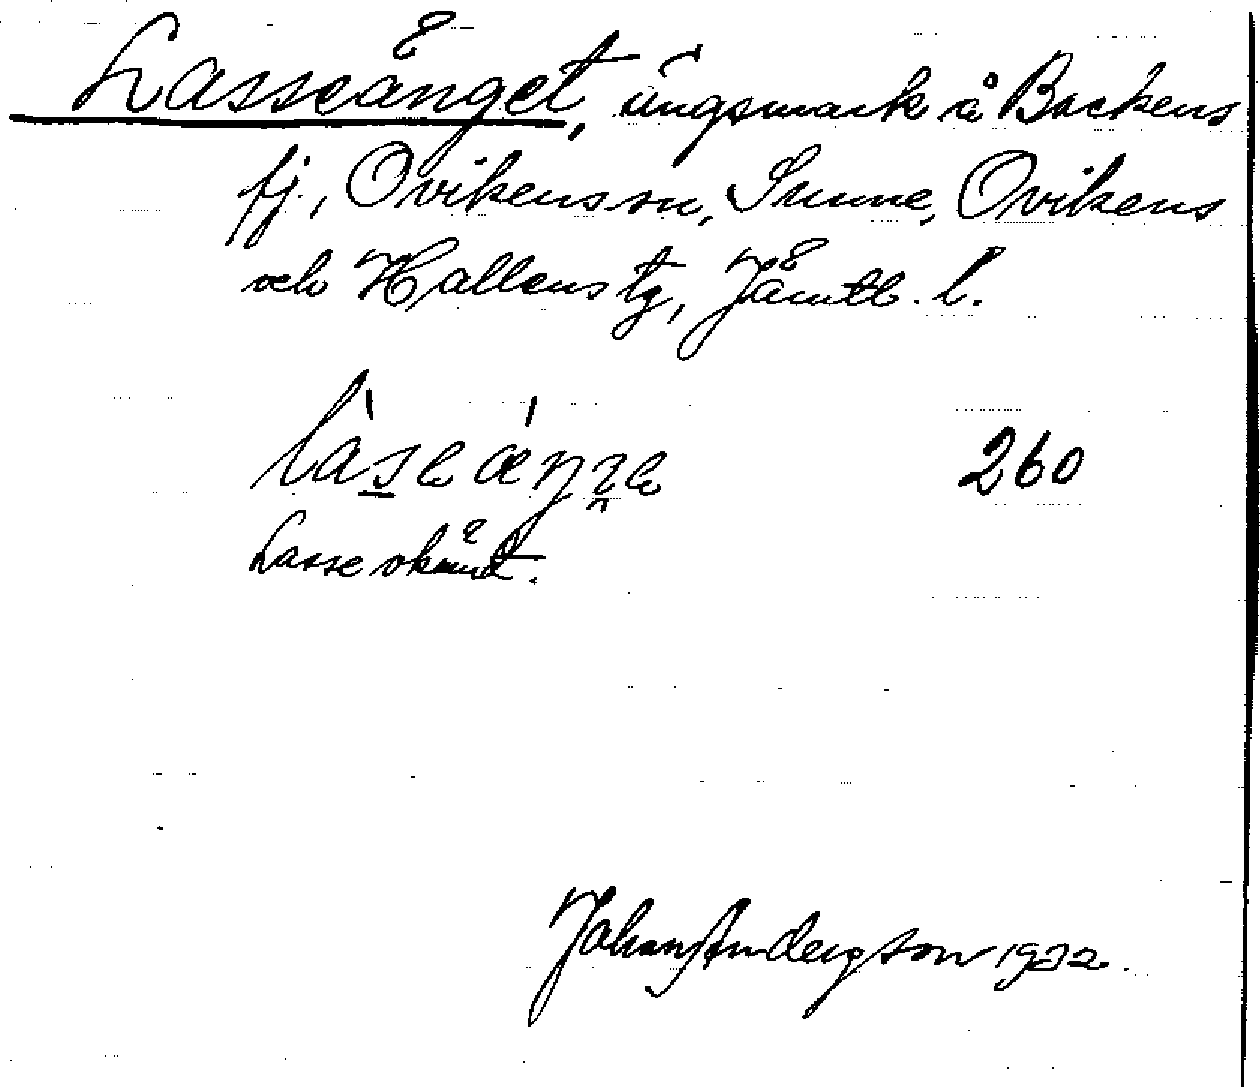 Lasseänget, ängsmark å Backens
fj., Ovikens sn, Sunne, Ovikens
och Hallens tg, Jämtl. l.
260
Lasse okänt.
Johan Anderson 1932.